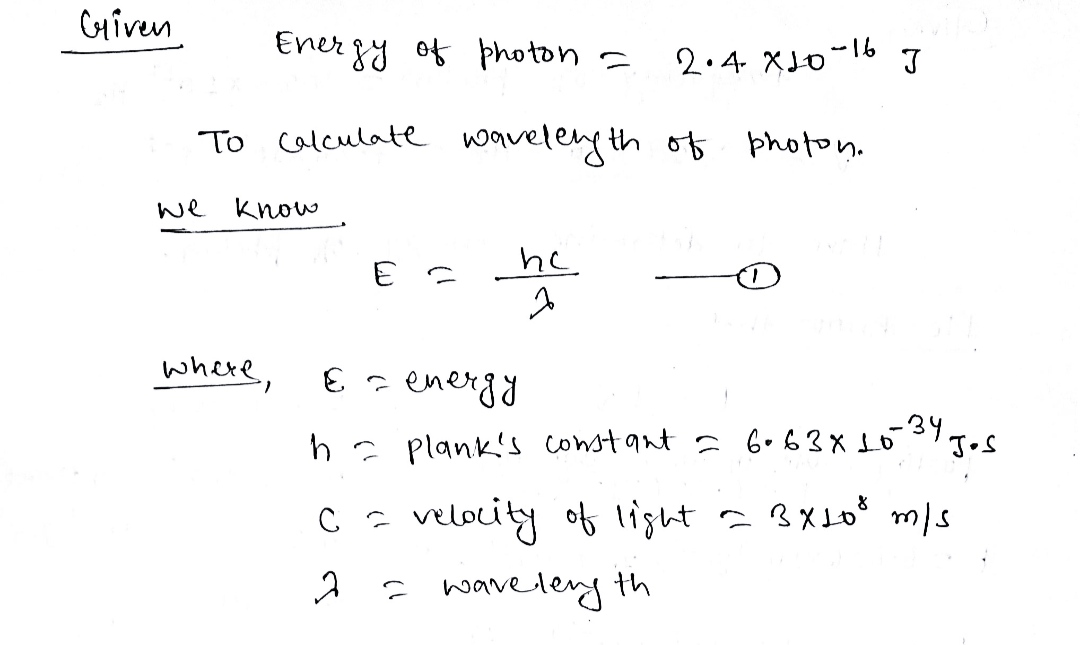 Given
Energy of photon = 2.4 × 10⁻¹⁶ J
To calculate wavelength of photon.
we know
E = hc/λ ——①
where, E = energy
h = plank's constant = 6.63 × 10⁻³⁴ J.s
C = velocity of light = 3 × 10⁸ m/s
λ = wavelength